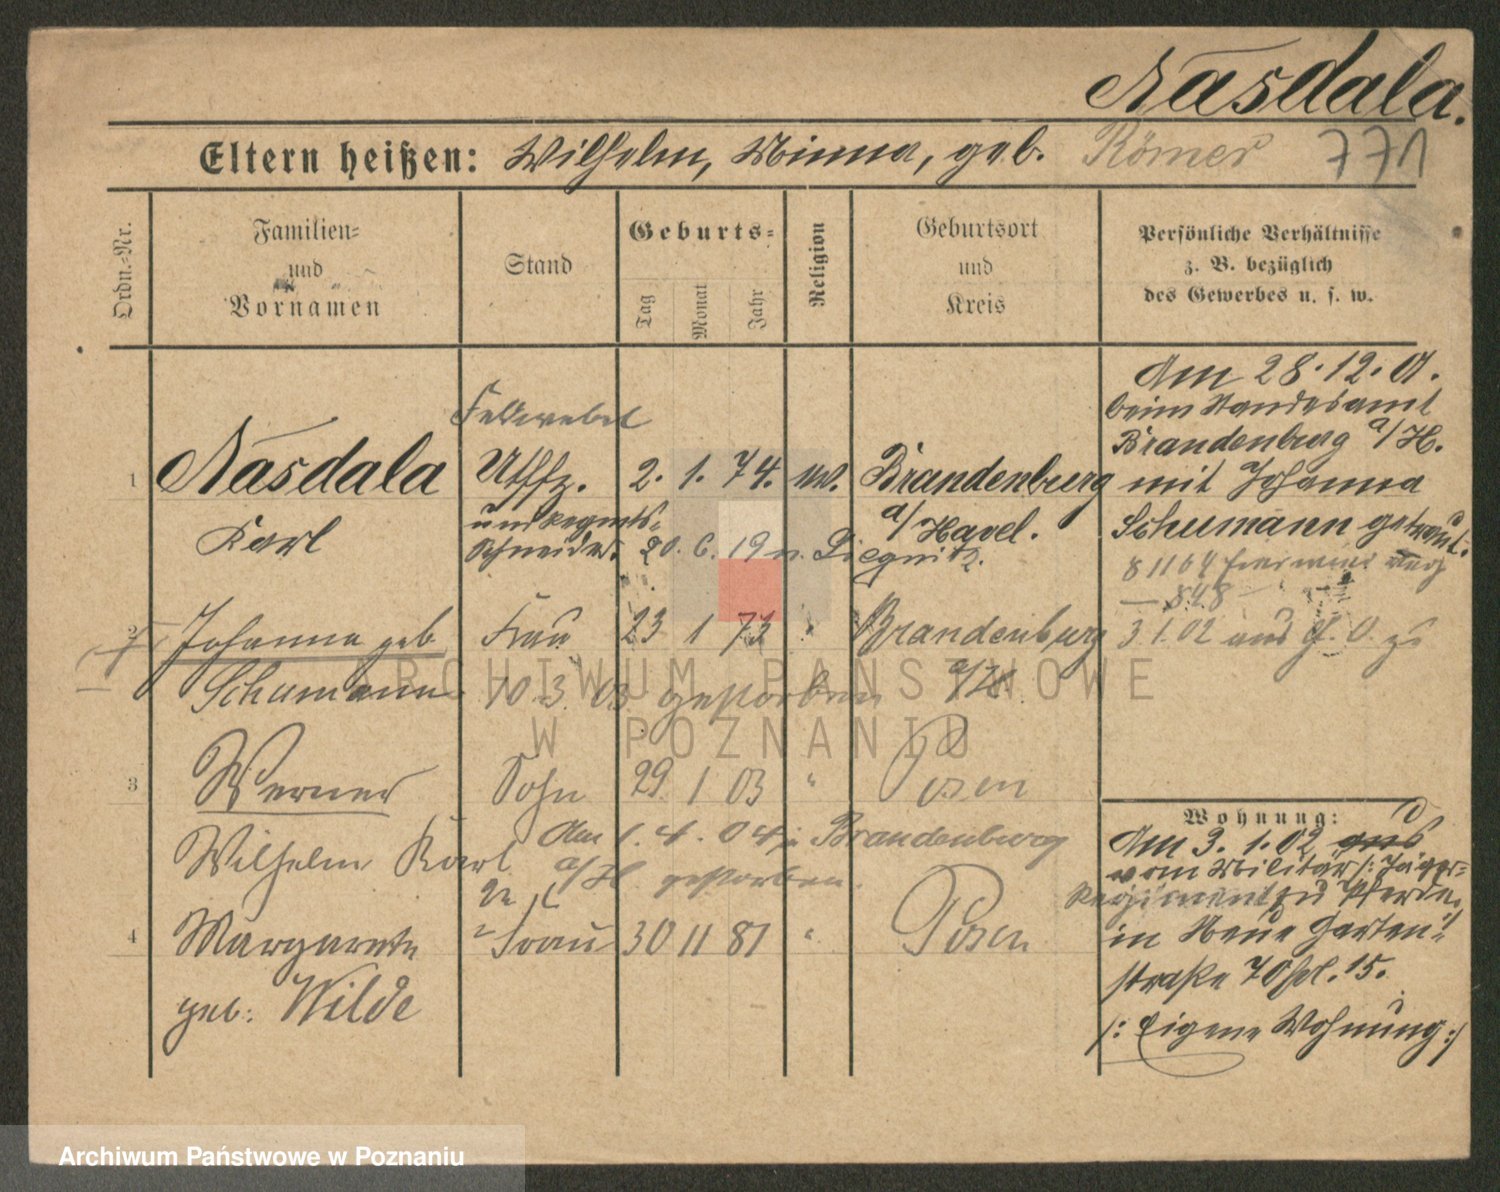 Nasdala.
Eltern heißen: Wilhelm, Minna, geb. Römer 771
Ordn.-Nr.
Familien-
und
Vornamen
Stand
Geburts-
Tag
Monat
Jahr
Religion
Geburtsort
und
Kreis
Persönliche Verhältnisse
z. B. bezüglich
des Gewerbes u. s. w.
Am 28.12.01.
beim Standesamt
Brandenburg a/H.
mit Johanna
Schumann getraut.
Feldwebel
1 Nasdala Utffz. 2. 1. 74. ev. Brandenburg
a/Havel.
Karl und Regmts-
Schneider. 20. 6. 19 n. Liegnitz.
3 1.02 aus zu
2 Johanna geb Frau 23 1 73 " Brandenburg
a/H.
Schumann 10 3. 03 gestorben
3 Werner Sohn 29 1 03 " Posen
Wilhelm Karl Am 1. 4. 04 in Brandenburg
a/H gestorben.
4 Margarete Frau 30 11 81 " Posen
geb: Wilde
Wohnung:
Am 3. 1. 02 aus
vom Militär /: Jäger-
Regiment zu Pferde,
in Neue Garten-
straße 70 pt. 15.
/: Eigene Wohnung :/
ARCHIWUM PAŃSTWOWE
W POZNANIU
Archiwum Państwowe w Poznaniu